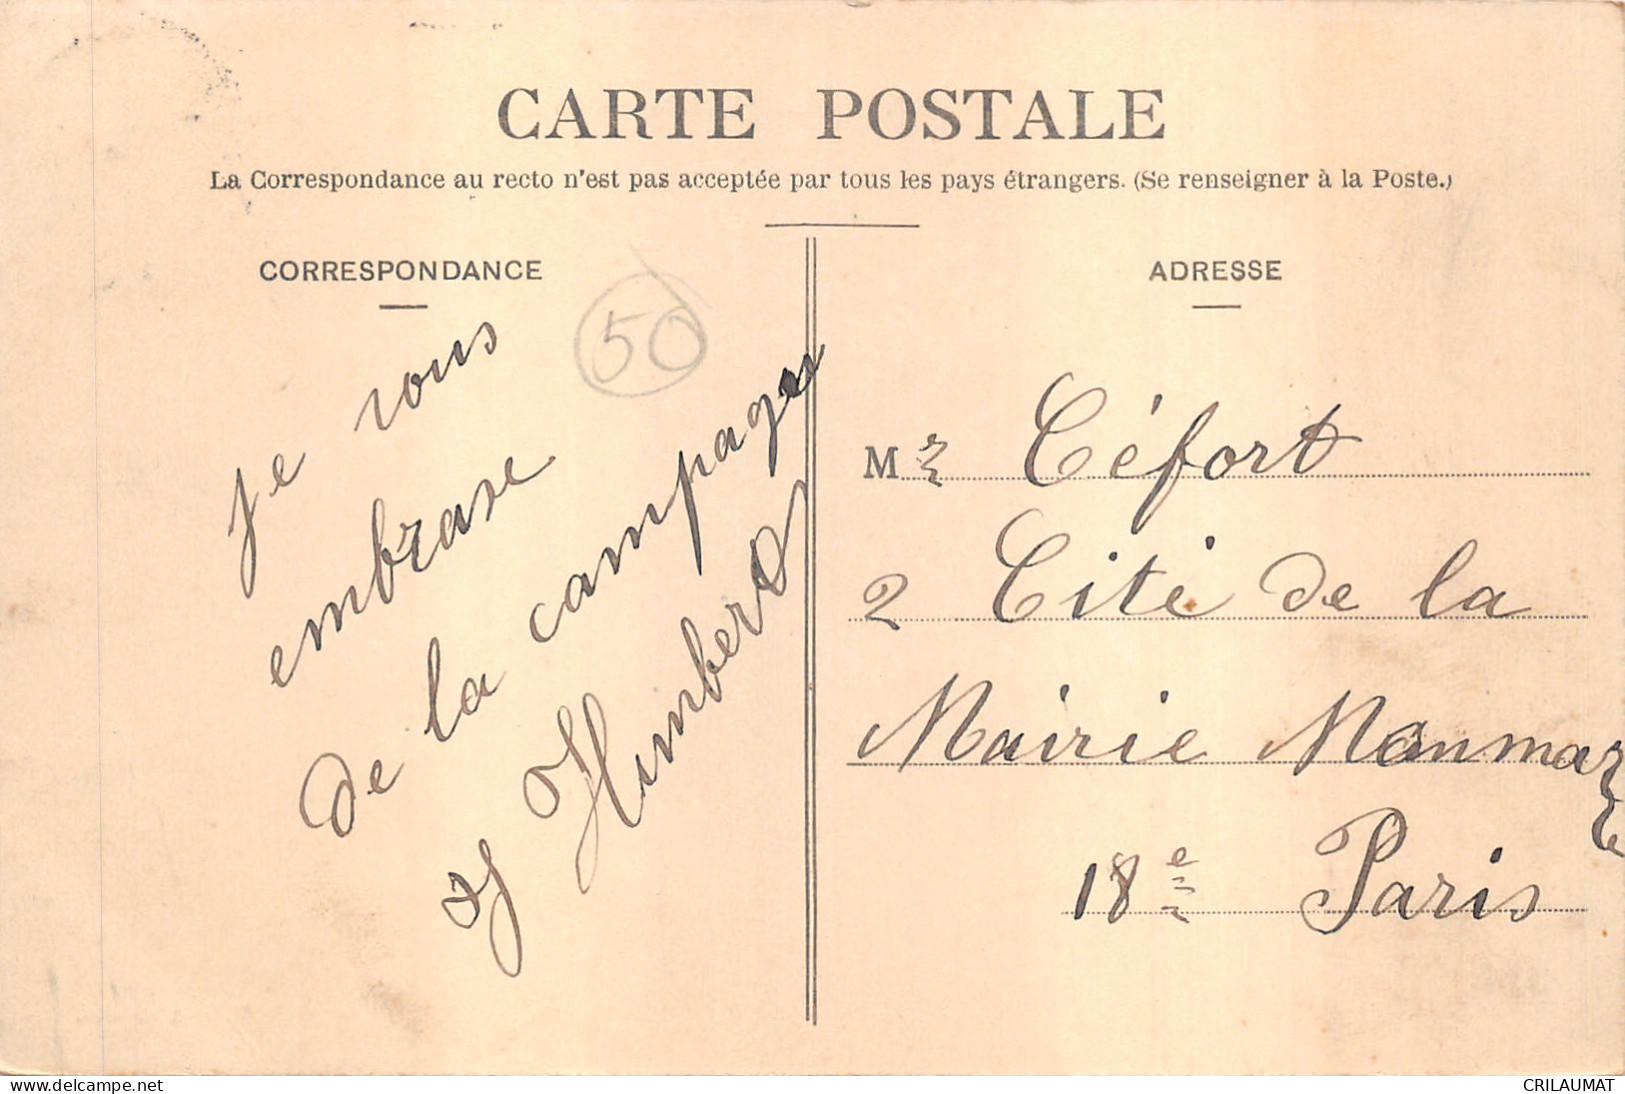 CARTE POSTALE
La Correspondance au recto n'est pas acceptée par tous les pays étrangers. (Se renseigner à la Poste.)
CORRESPONDANCE
50
je vous
embrase
de la campagne
Humbert
ADRESSE
Mr Céfort
2 Cité de la
Mairie Monmartre
18e Paris
www.delcampe.net
CRILAUMAT